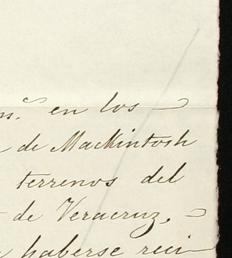 n.º en los
de Mackintosh
terrenos del
de Veracruz,
haberse reci